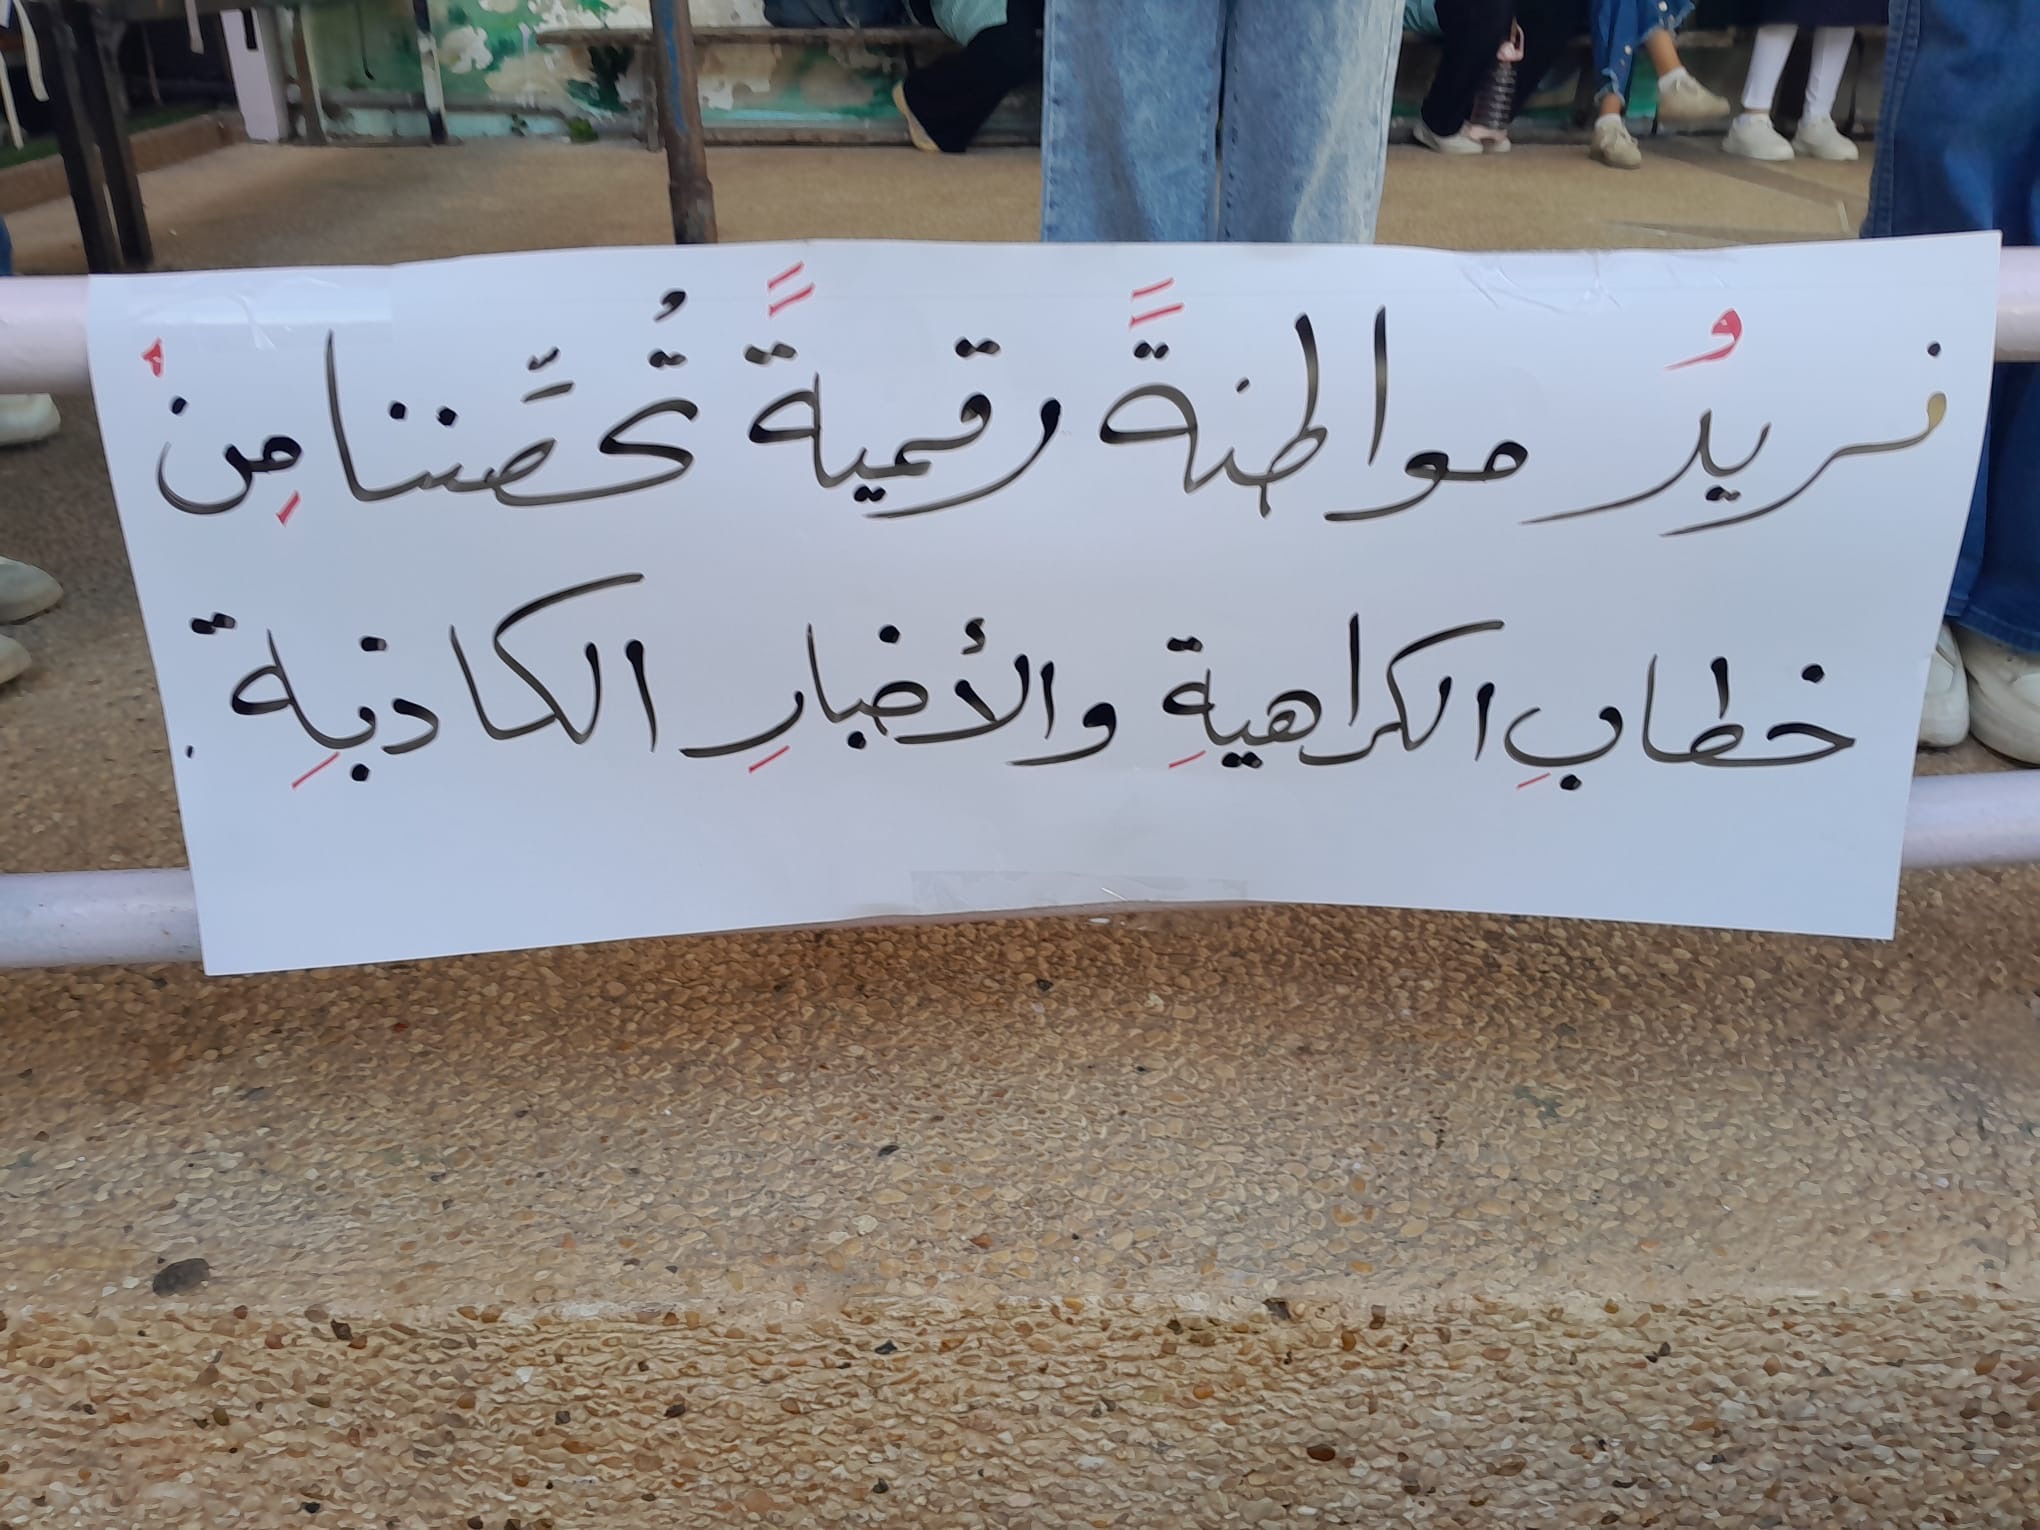 نريدُ مواطنةً رقميةً تُحصِّننا مِنْ
خطابِ الكراهيةِ والأخبارِ الكاذبِة.